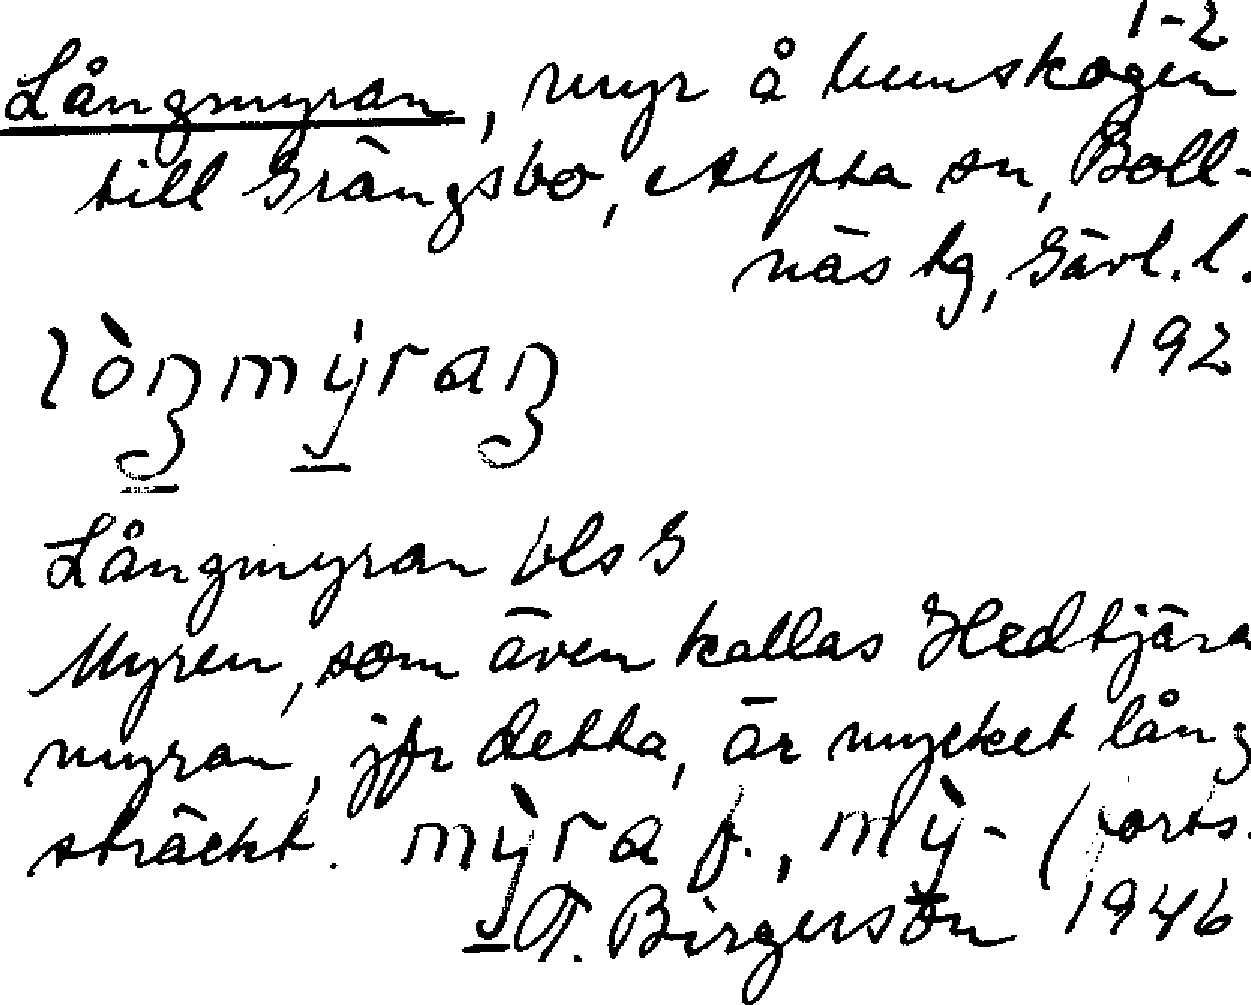 1-2
Långmyran, myr å hemskogen
till Grängsbo, Alfta sn, Boll-
näs tg, Gävl. l.
192
Långmyran bls G
Myren, som även kallas Hedtjära
myran, jfr detta, är mycket lång
sträckt. f., (forts.
T. Birgersson 1946